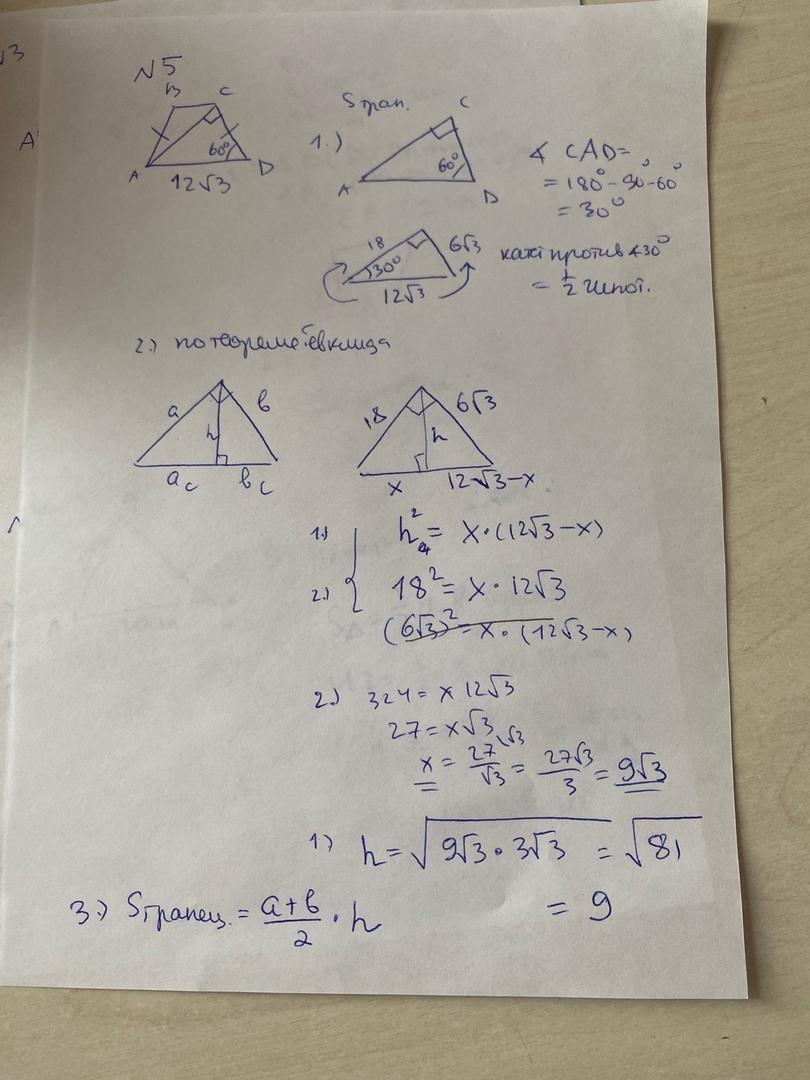 √3
A
N5
B C
60°
A D
12√3
Sтрап.
1.)
C
60°
A D
∡ CAD=
= 180° - 90° - 60°
= 30°
18 6√3
30°
12√3
кат против ∡30°
= 1/2 гипот.
2.) по теореме Евклида
a b
h
a_c b_c
18 6√3
h
x 12√3-x
1.) h² = x·(12√3-x)
2.) 18² = x·12√3
(6√3)² = x·(12√3-x)
2.) 324 = x 12√3
27 = x√3
x = 27/√3 (√3 = 27√3/3 = 9√3
1) h = √(9√3·3√3) = √81
= 9
3.) Sтрапец. = (a+b)/2 · h